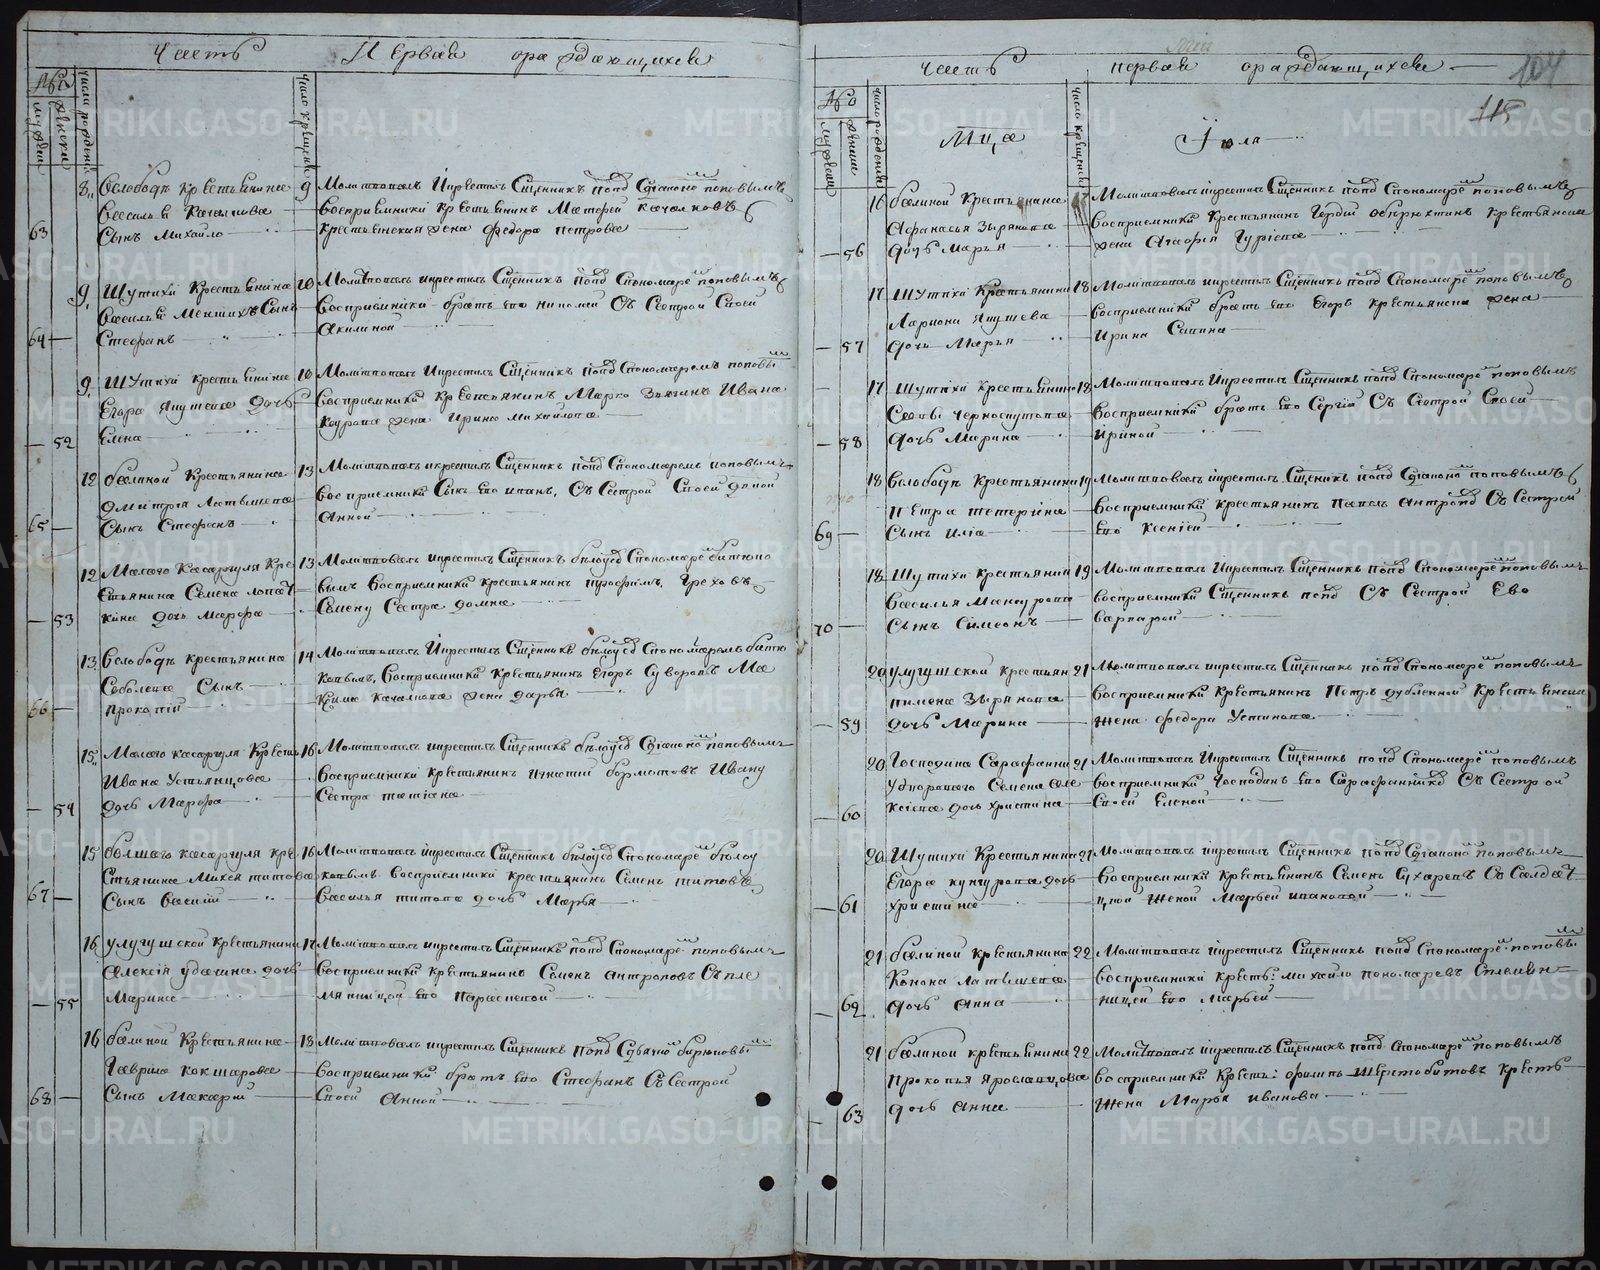 Часть Первая ораждающихся
№
мужеск
женска
число рождени
число крещени
63
8
Слободы крестьянина
Василья Качалкова
Сынъ Михайло
9
Молитвовалъ икрестилъ Священникъ попд Сдіакономъ поповымъ
восприемники крестьянинъ Матфей качалковъ
крестьянская жена федора петрова
64
9
Шутихи крестьянина
Василья Меншихъ Сынъ
Стефанъ
10
Молитвовалъ икрестилъ Священникъ попд Спономаремъ поповымъ
восприемники братъ его Сестрой Своей
Акилиной
52
9
Шутихи крестьянина
Егора Якушева дочь
Елена
10
Молитвовалъ икрестилъ Священникъ попд Спономаремъ поповы
восприемники крестьянинъ Марко Ивана
жена Ирина михайлова
65
12
балиной крестьянина
Дмитрія Латышева
Сынъ Стефанъ
13
Молитвовалъ икрестилъ Священникъ попд Спономаремъ поповымъ
восприемники Сынъ его иванъ, Съ Сестрой Своей
Анной
53
12
Малаго Касаргуля кре
стьянина Семена лопат
кина дочь Марфа
13
Молитвовалъ икрестилъ Священникъ бѣлоусд Спономаремъ битюко
вымъ восприемники крестьянинъ трофимъ Греховъ
Семену Сестра домна
66
13
Слободы крестьянина
Соболева Сынъ
прокопій
14
Молитвовалъ икрестилъ Священникъ бѣлоусд Спономаремъ битю
ковымъ, восприемники крестьянинъ Егоръ Суворовъ Ма
ксима качалкова жена дарья
54
15
Малаго касаргуля кресть
Ивана Устьянцова
дочь Марфа
16
Молитвовалъ икрестилъ Священникъ бѣлоусд Сдіакономъ поповымъ
восприемники крестьянинъ игнатій бармотовъ Ивану
Сестра татіана
67
15
болшаго касаргуля кре
стьянина Михея титова
Сынъ василій
16
Молитвовалъ икрестилъ Священникъ бѣлоусд Спономаремъ бѣлоу
ковымъ восприемники крестьянинъ Семенъ титовъ
василья титова дочь Марья
55
16
улугушской крестьянина
Алексія удачина дочь
Марина
17
Молитвовалъ икрестилъ Священникъ попд Спономаремъ поповымъ
восприемники крестьянинъ Семенъ антроповъ Съ пле
мянницой его Парасковой
68
16
балиной крестьянина
Гаврила кокшарова
Сынъ Макарій
18
Молитвовалъ икрестилъ Священникъ попд Сдьячкомъ бирюковы
восприемники братъ его Стефанъ Съ Сестрой
Своей Анной
Часть первая ораждающихся
104
115
№
мужеска
женска
число рождени
Мца
число крещени
Іюля
56
16
балиной крестьянина
Афанасья Зырянова
дочь Марья
17
Молитвовалъ икрестилъ Священникъ попд Спономаремъ поповымъ
восприемники крестьянинъ Гордій обрюхтинъ крестьянска
жена Агафія Гурьева
57
17
Шутихи Крестьянина
Лариона Якушева
дочь Марья
18
Молитвовалъ икрестилъ Священникъ попд Спономаремъ поповымъ
восприемники братъ его Егоръ крестьянска жена
Ирина Савина
58
17
Шутихи крестьянина
Савы черноскутова
дочь Марина
18
Молитвовалъ икрестилъ Священникъ попд Спономаремъ поповымъ
восприемники братъ его Сергій Съ Сестрой Своей
Ириной
69
18
Слободы Крестьянина
Петра тетерина
Сынъ илія
19
Молитвовалъ икрестилъ Священникъ попд Сдіакономъ поповымъ
восприемники крестьянинъ Павелъ антропд Съ Сестрой
его Ксеніей
70
18
Шутихи крестьянина
Василья Мансурова
Сынъ Симеонъ
19
Молитвовалъ икрестилъ Священникъ попд Спономаремъ поповымъ
восприемники Священникъ попд Съ Сестрой Ево
варварой
59
20
улугушской крестьян
пимена Зырянова
дочь Марина
21
Молитвовалъ икрестилъ Священникъ попд Спономаремъ поповымъ
восприемники крестьянинъ Петръ дубленной крестьянска
жена федора Устинова
60
20
Господина Сарафанни
удвороваго Семена але
ксіева дочь христина
21
Молитвовалъ икрестилъ Священникъ попд Спономаремъ поповымъ
восприемники Господинъ его Сарафанникд Съ Сестрой
Своей Еленой
61
20
Шутихи Крестьянина
Егора кунгурова дочь
христина
21
Молитвовалъ икрестилъ Священникъ попд Сдіакономъ поповымъ
восприемники крестьянинъ Семенъ Сухаревъ Съ Салдат
цкой Женой Марьей ивановой
62
21
балиной крестьянина
Конона Латышева
дочь анна
22
Молитвовалъ икрестилъ Священникъ попд Спономаремъ поповы
восприемники кресть: михайло пономаревъ Сплемян
ницей его Марьей
63
21
балиной крестьянина
Прокопья Ярославцова
дочь Анна
22
Молитвовалъ икрестилъ Священникъ попд Спономаремъ поповымъ
восприемники Кресть: филипъ Шерстобитовъ кресть
жена Марья иванова
METRIKI.GASO-URAL.RU